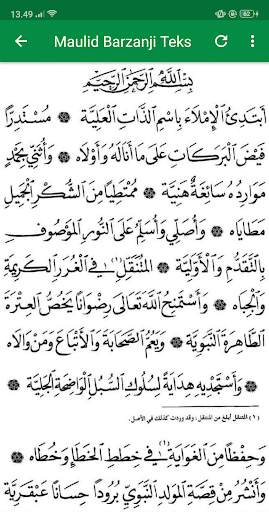 13.49
62
Maulid Barzanji Teks
بِسْمِ اللهِ الرَّحْمٰنِ الرَّحِيْمِ
أَبْتَدِئُ الْإِمْلَاءَ بِاسْمِ الذَّاتِ الْعَلِيَّةِ ۞ مُسْتَدِرًّا
فَيْضَ الْبَرَكَاتِ عَلٰى مَا أَنَالَهُ وَأَوْلَاهُ ۞ وَأُثَنِّيْ بِحَمْدٍ
مَوَارِدُهُ سَائِغَةٌ هَنِيَّةٌ ۞ مُمْتَطِيًا مِنَ الشُّكْرِ الْجَمِيْلِ
مَطَايَاهُ ۞ وَأُصَلِّيْ وَأُسَلِّمُ عَلَى النُّوْرِ الْمَوْصُوْفِ
بِالتَّقَدُّمِ وَالْأَوَّلِيَّةِ ۞ الْمُنْتَقِلِ (١) فِي الْغُرَرِ الْكَرِيْمَةِ
وَالْجِبَاهِ ۞ وَأَسْتَمْنِحُ اللهَ تَعَالٰى رِضْوَانًا يَخُصُّ الْعِتْرَةَ
الطَّاهِرَةَ النَّبَوِيَّةَ ۞ وَيَعُمُّ الصَّحَابَةَ وَالْأَتْبَاعَ وَمَنْ وَالَاهُ
۞ وَأَسْتَجْدِيْهِ هِدَايَةً لِسُلُوْكِ السُّبُلِ الْوَاضِحَةِ الْجَلِيَّةِ ۞
(١) المتنقل أبلغ من المنتقل، وقد وردت كذلك في الأصل.
وَحِفْظًا مِنَ الْغَوَايَةِ (١) فِيْ خِطَطِ الْخَطَاءِ وَخُطَاهُ ۞
وَأَنْشُرُ مِنْ قِصَّةِ الْمَوْلِدِ النَّبَوِيِّ بُرُوْدًا حِسَانًا عَبْقَرِيَّةً